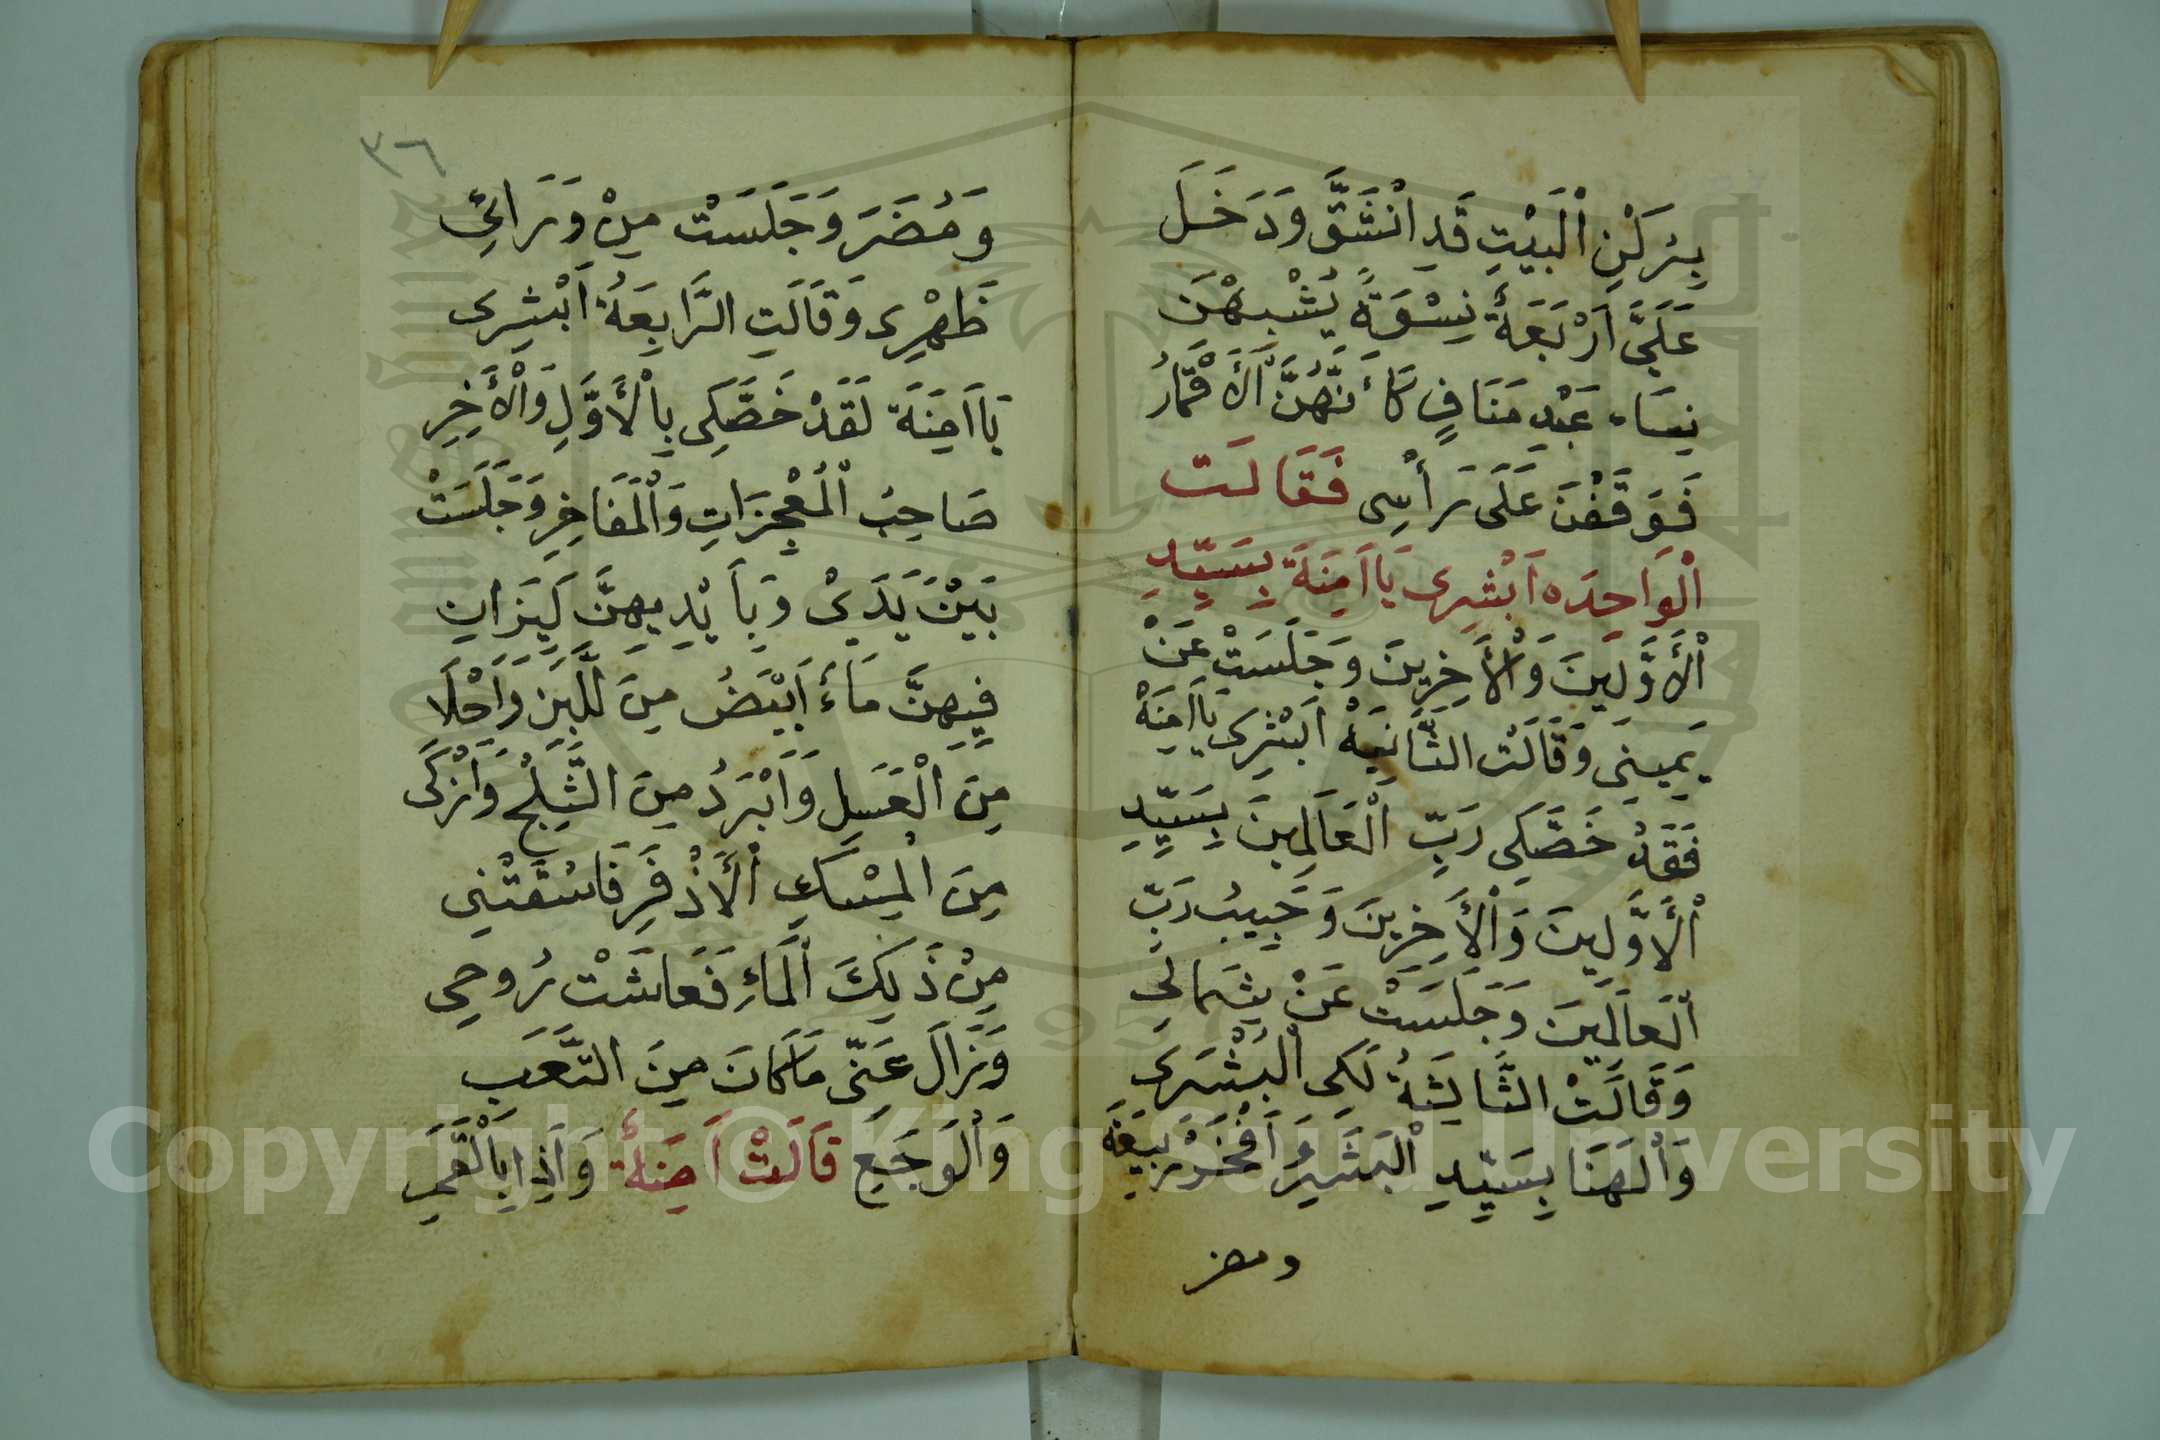 بِرُكْنِ اْلبَيْتِ قَدِ انْشَقَّ وَدَخَلَ
عَلَيَّ اَرْبَعَةُ نِسْوَةً يُشْبِهْنَ
نِسَاء عَبْدِ مَنَافٍ كَأَنَّهُنَّ اْلأَقْمَارُ
فَوَقَفْنَ عَلَى رَأْسِى فَقَالَت
اْلوَاحِدَه اَبْشِرِى يَا اَمِنَةَ بِسَيِّدِ
اْلأَوَّلِينَ وَاْلأَخِرِينَ وَجَلَسَتْ عَنْ
يَمِينِى وَقَالَتْ الثَّانِيَةْ اَبْشِرِى يَا اَمِنَةْ
فَقَدْ خَصَّكِى رَبِّ اْلعَالَمِينَ بِسَيِّدِ
اْلأَوَّلِينَ وَاْلأَخِرِينَ وَحَبِيبُ رَبِّ
اْلعَالَمِينَ وَجَلَسَتْ عَنْ شِمَالِى
وَقَالَتْ الثَّالِثَةُ لَكِى اْلبُشْرَى
وَاْلهَنَا بِسَيِّدِ اْلبَشَرِ اَفْخَرْ رَبِيعَةَ
ومضر
٣٦
وَمُضَرَ وَجَلَسَتْ مِنْ وَرَائِى
ظَهْرِى وَقَالَتِ الرَّابِعَةُ اَبْشِرِى
يَا اَمِنَة لَقَدْ خَصَّكِى بِاْلأَوَّلِ وَاْلأَخِرِ
صَاحِبُ اْلمُعْجِزَاتِ وَاْلمَفَاخِرِ وَجَلَسَتْ
بَيْنَ يَدَىْ وَبِأَيْدِيهِنَّ كِيزَانِ
فِيهِنَّ مَاءً اَبْيَضُ مِنَ للَّبَنِ وَاَحْلَا
مِنَ اْلعَسَلِ وَاَبْرَدُ مِنَ الثَّلْجِ وَاَزْكَى
مِنَ اْلمِسْكِ اْلأَذْفَرِ فَاسْقَتْنِى
مِنْ ذَلِكَ اْلمَاءِ فَعَاشَتْ رُوحِى
وَزَالَ عَنِّى مَاكَانَ مِنَ التَّعَب
وَاْلوَجَعِ قَالَتْ اَمِنَةُ وَاَذِا بِاْلقَمَرِ
Copyright © King Saud University